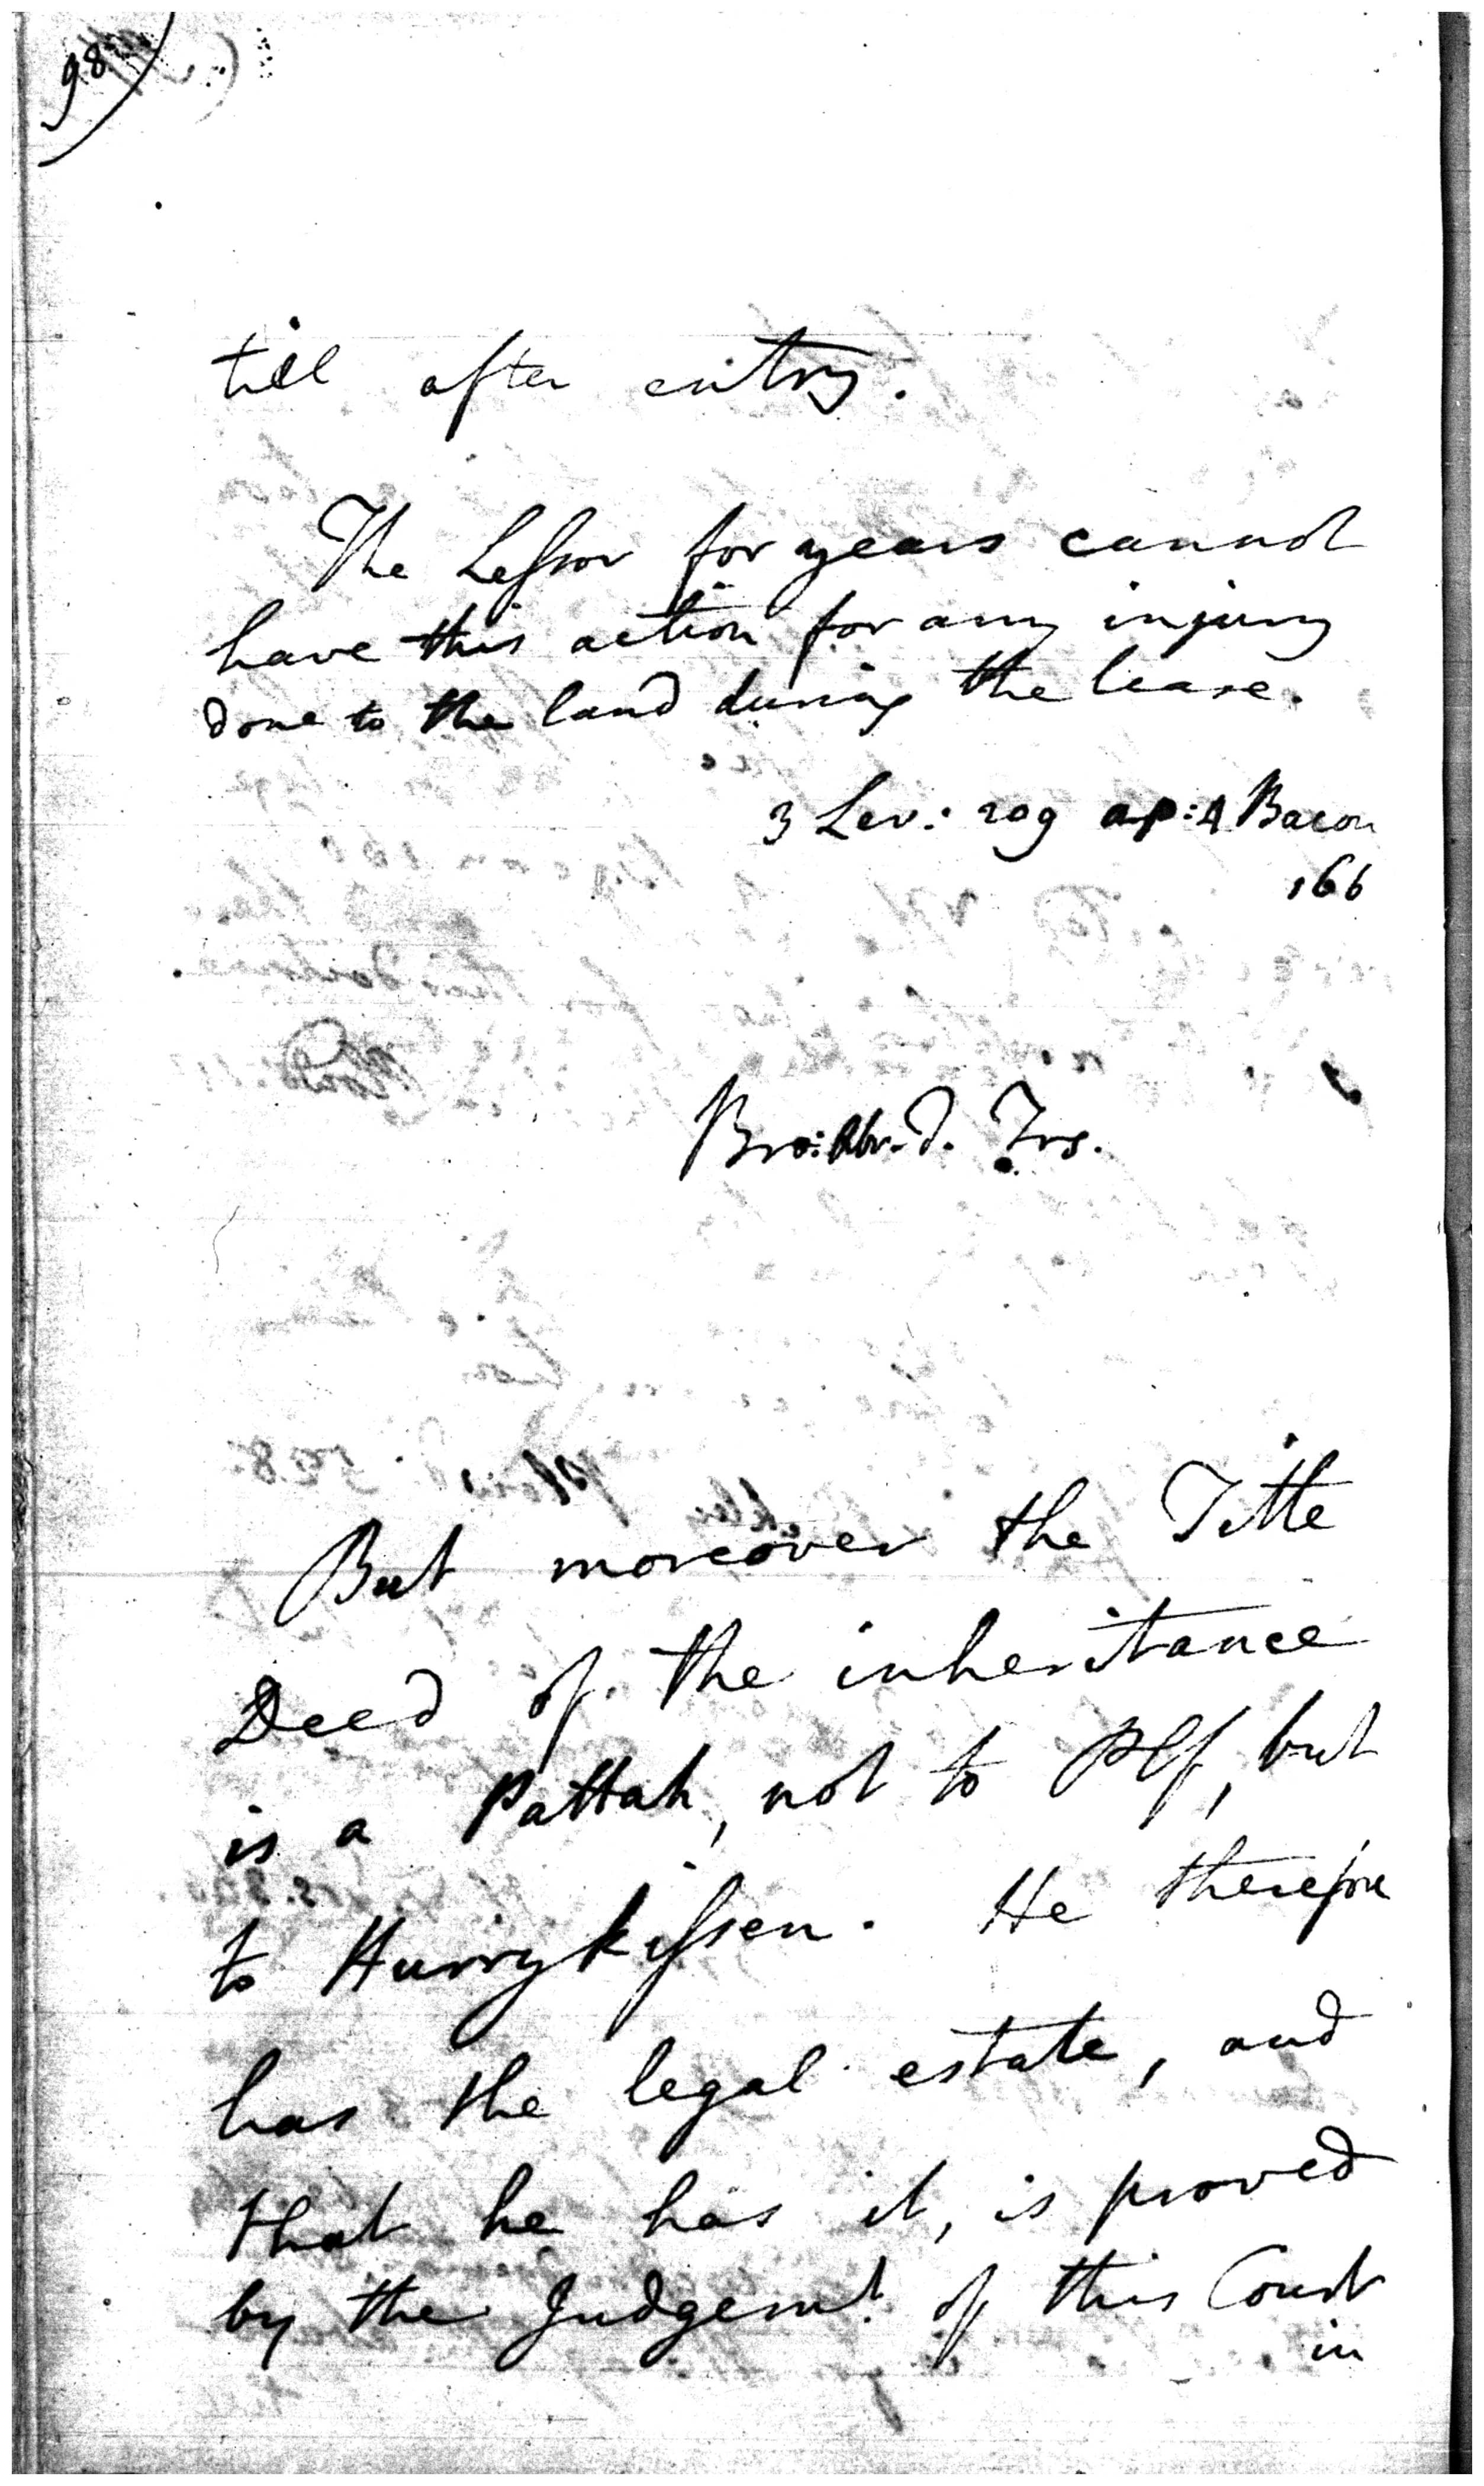 98
till after entry.
The Leſsor for years cannot
have this action for any injury
done to the land during the lease.
3 Lev: 209 ap: 4 Bacon
166
Bro: Abr. T. Trs.
But moreover the Title
Deed of the inheritance
is a Pattah, not to Plf, but
to Hurrykiſsen. He therefore
has the legal estate, and
that he has it, is proved
by the Judgemt. of this Court
in